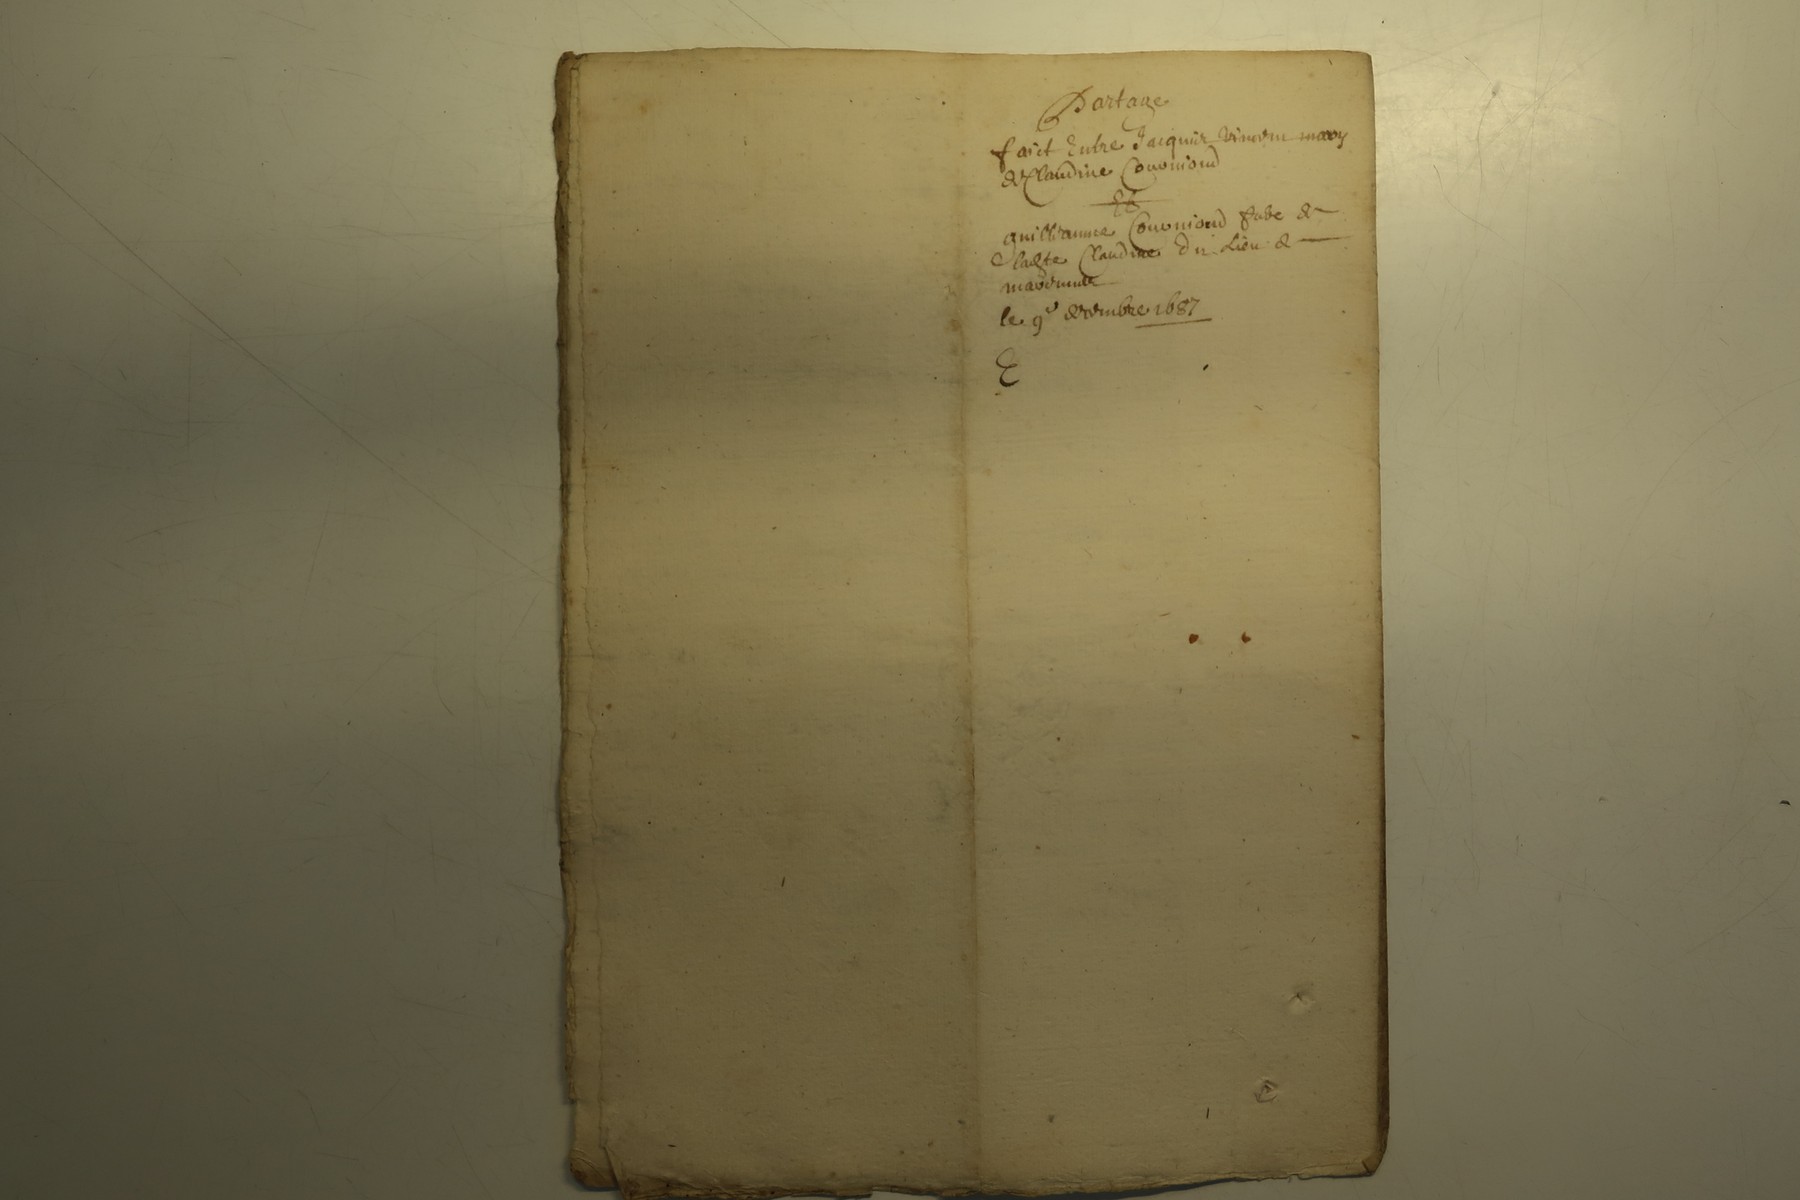 Partage
faict Entre Jacques Vincent mary
de Claudine Couvniond
Et
guilliaume Couvniond frere de
Claudine du Lieu de
le 9e decembre 1687
E